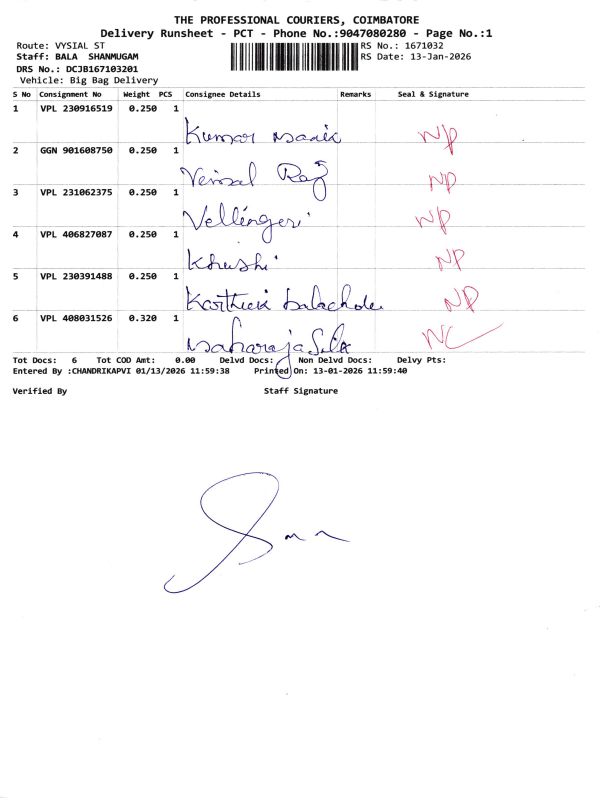 THE PROFESSIONAL COURIERS, COIMBATORE
Delivery Runsheet - PCT - Phone No.:9047080280 - Page No.:1
Route: VYSIAL ST RS No.: 1671032
Staff: BALA SHANMUGAM RS Date: 13-Jan-2026
DRS No.: DCJB167103201
Vehicle: Big Bag Delivery
S No Consignment No Weight PCS Consignee Details Remarks Seal & Signature
1 VPL 230916519 0.250 1
Kumar NP
2 GGN 901608750 0.250 1
Raj NP
3 VPL 231062375 0.250 1
Vellingeri NP
4 VPL 406827087 0.250 1
Khushi NP
5 VPL 230391488 0.250 1
Karthick NP
6 VPL 408031526 0.320 1
Maharaja Silk NC
Tot Docs: 6 Tot COD Amt: 0.00 Delvd Docs: Non Delvd Docs: Delvy Pts:
Entered By :CHANDRIKAPVI 01/13/2026 11:59:38 Printed On: 13-01-2026 11:59:40
Verified By Staff Signature